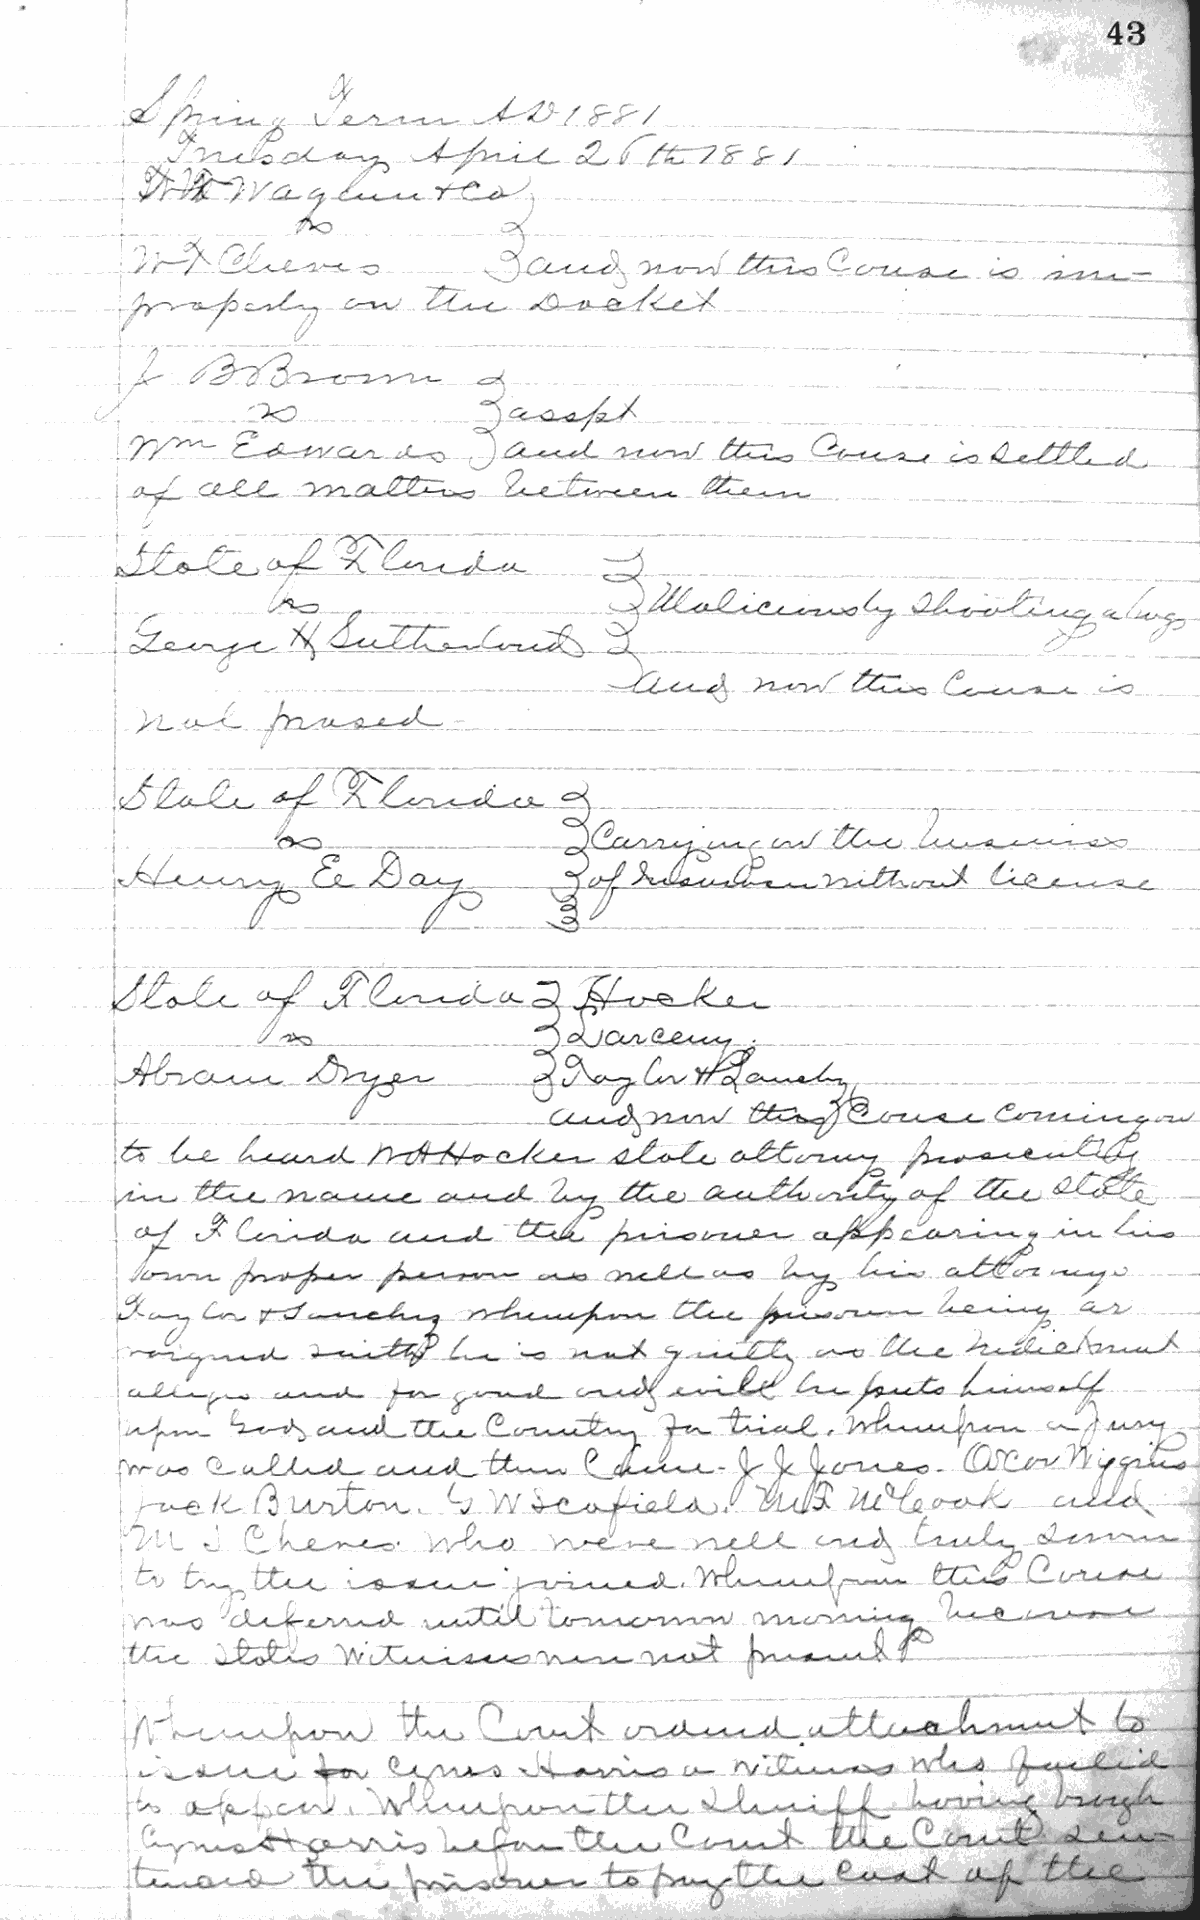 43
Spring Term AD 1881
Tuesday April 26th 1881
Wagenn & Co
vs
W F Cheves } and now this Couse is im-
properly on the Docket
J B Brown
vs } asspt
Wm Edwards } and now this Couse is settled
of all matters between them
State of Florida
vs } Maliciously shooting a hog
George H Sutherland
and now this Couse is
nol prosed
State of Florida
vs } Carrying on the business
Henry E Day } of without license
State of Florida } Hocker
vs } Larceny
Abram Dryer } Taylor & Sanchez
and now this Couse coming on
to be heard W A Hocker state attorny prosecuting
in the name and by the authority of the State
of Florida and the prisoner appearing in his
own proper person as well as by his attorneys
Taylor & Sanchez whereupon the prisoner being ar
raigned saith he is not guilty as the Indictment
alleges and for good and evill he puts himself
upon God and the Country for trial. Whereupon a Jury
was called and then Came - J J Jones. Oscar Wiggins
Jack Burton. G W Scofield. M F McCook and
M J Cheves. Who were well and truly sworn
to try the issue joined. Whereupon this Couse
was deferred until tomorrow morning because
the States Witnesses were not present
Whereupon the Court ordered attachment to
issue for Cyrus Harris a witness who failed
to appear. Whereupon the Sheriff having brough
Cyrus Harris before the Court the Court sen-
tenced the prisoner to pay the cost of the